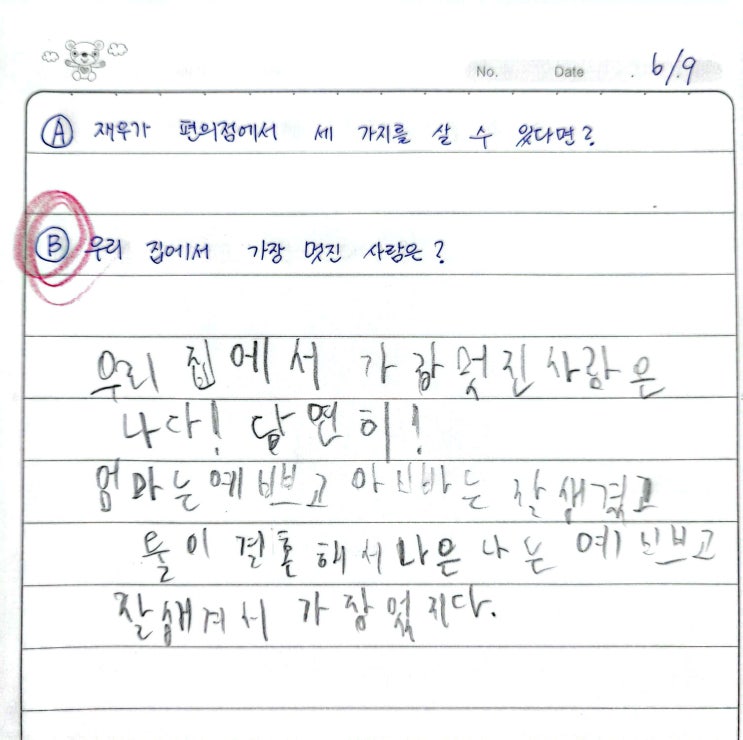 No. Date . 6/9
Ⓐ 재우가 편의점에서 세 가지를 살 수 있다면?
Ⓑ 우리 집에서 가장 멋진 사람은?
우리 집에서 가장 멋진 사람은
나다! 당연히!
엄마는 예쁘고 아빠는 잘생겼고
둘이 결혼해서 나은 나는 예쁘고
잘생겨서 가장 멌지다.